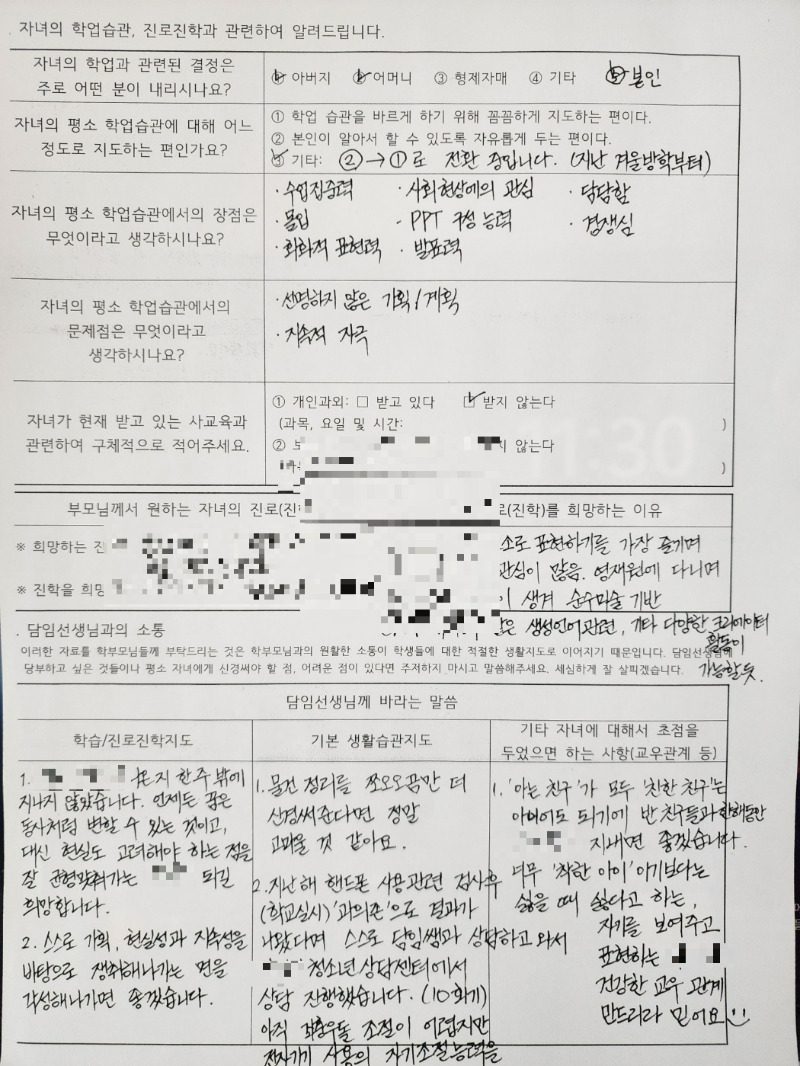 . 자녀의 학업습관, 진로진학과 관련하여 알려드립니다.
자녀의 학업과 관련된 결정은
주로 어떤 분이 내리시나요?
① 아버지 ② 어머니 ③ 형제자매 ④ 기타 ⑤ 본인
자녀의 평소 학업습관에 대해 어느
정도로 지도하는 편인가요?
① 학업 습관을 바르게 하기 위해 꼼꼼하게 지도하는 편이다.
② 본인이 알아서 할 수 있도록 자유롭게 두는 편이다.
③ 기타: ②→①로 전환 중입니다. (지난 겨울방학부터)
자녀의 평소 학업습관에서의 장점은
무엇이라고 생각하시나요?
· 수업집중력 · 사회현상에의 관심 · 담담함
· 몰입 - PPT 구성 능력 · 경쟁심
· 회화적 표현력 · 발표력
자녀의 평소 학업습관에서의
문제점은 무엇이라고
생각하시나요?
· 선명하지 않은 기획/계획
· 지속적 자극
자녀가 현재 받고 있는 사교육과
관련하여 구체적으로 적어주세요.
① 개인과외: □ 받고 있다 ☑ 받지 않는다
(과목, 요일 및 시간: )
② 지 않는다
)
11:30
부모님께서 원하는 자녀의 진로(진 로(진학)를 희망하는 이유
※ 희망하는 진
※ 진학을 희망
소로 표현하기를 가장 즐기며
관심이 많음. 영재원에 다니며
이 생겨 순수미술 기반
같은 생성언어관련, 기타 다양한 크리에이터
활동이
가능할 듯.
. 담임선생님과의 소통
이러한 자료를 학부모님들께 부탁드리는 것은 학부모님과의 원활한 소통이 학생들에 대한 적절한 생활지도로 이어지기 때문입니다. 담임선생님께
당부하고 싶은 것들이나 평소 자녀에게 신경써야 할 점, 어려운 점이 있다면 주저하지 마시고 말씀해주세요. 세심하게 잘 살피겠습니다.
담임선생님께 바라는 말씀
학습/진로진학지도
기본 생활습관지도
기타 자녀에 대해서 초점을
두었으면 하는 사항(교우관계 등)
1. 는지 한 주 밖에
지나지 않았습니다. 언제든 꿈은
동사처럼 변할 수 있는 것이고,
대신 현실도 고려해야 하는 점을
잘 균형맞춰가는 되길
희망합니다.
2. 스스로 기획, 현실성과 지속성을
바탕으로 쟁취해나가는 면을
각성해나가면 좋겠습니다.
1. 물건 정리를 쪼오오끔만 더
신경써준다면 정말
고마울 것 같아요.
2. 지난 해 핸드폰 사용관련 검사후
(학교실시) '과의존'으로 결과가
나왔다며 스스로 담임쌤과 상담하고 와서
청소년상담센터에서
상담 진행했습니다. (10회기)
아직 좌충우돌 조절이 어렵지만
전자기기 사용의 자기조절능력을
1. '아는 친구'가 모두 '친한 친구'는
아니어도 되기에 반 친구들과 한해동안
지내면 좋겠습니다.
너무 '착한 아이'이기보다는
싫을 때 싫다고 하는,
자기를 보여주고
표현하는
건강한 교우 관계
만드리라 믿어요